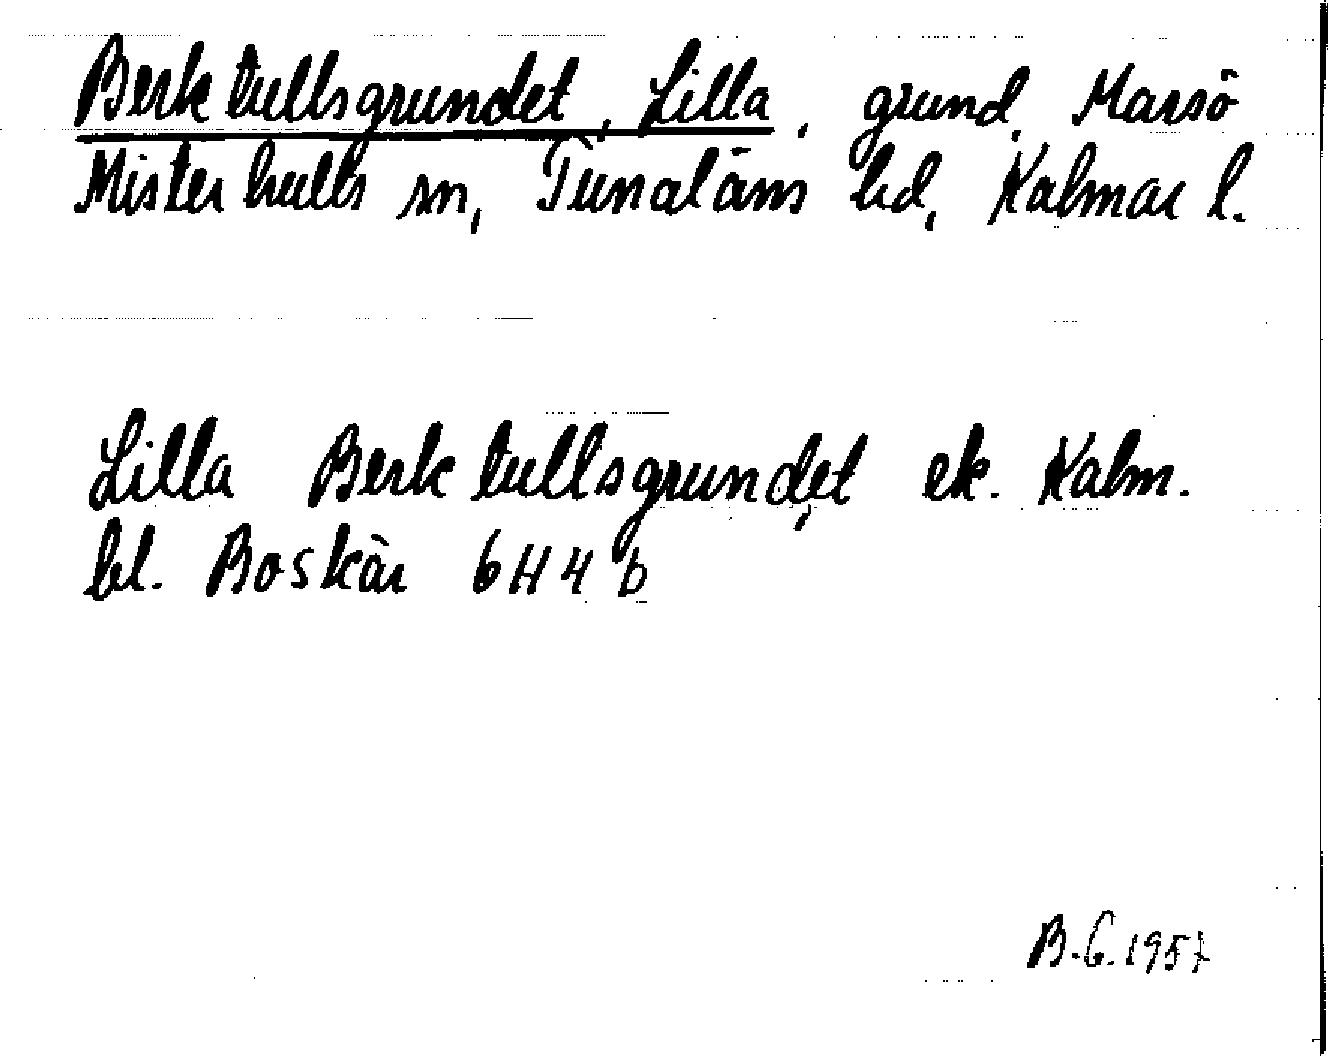 Berktullsgrundet, Lilla, grund, Marsö
Misterhults sn, Tunaläns hd, Kalmar l.
Lilla Berktullsgrundet ek. Kalm.
bl. Boskär 6H4b
B.G. 1957